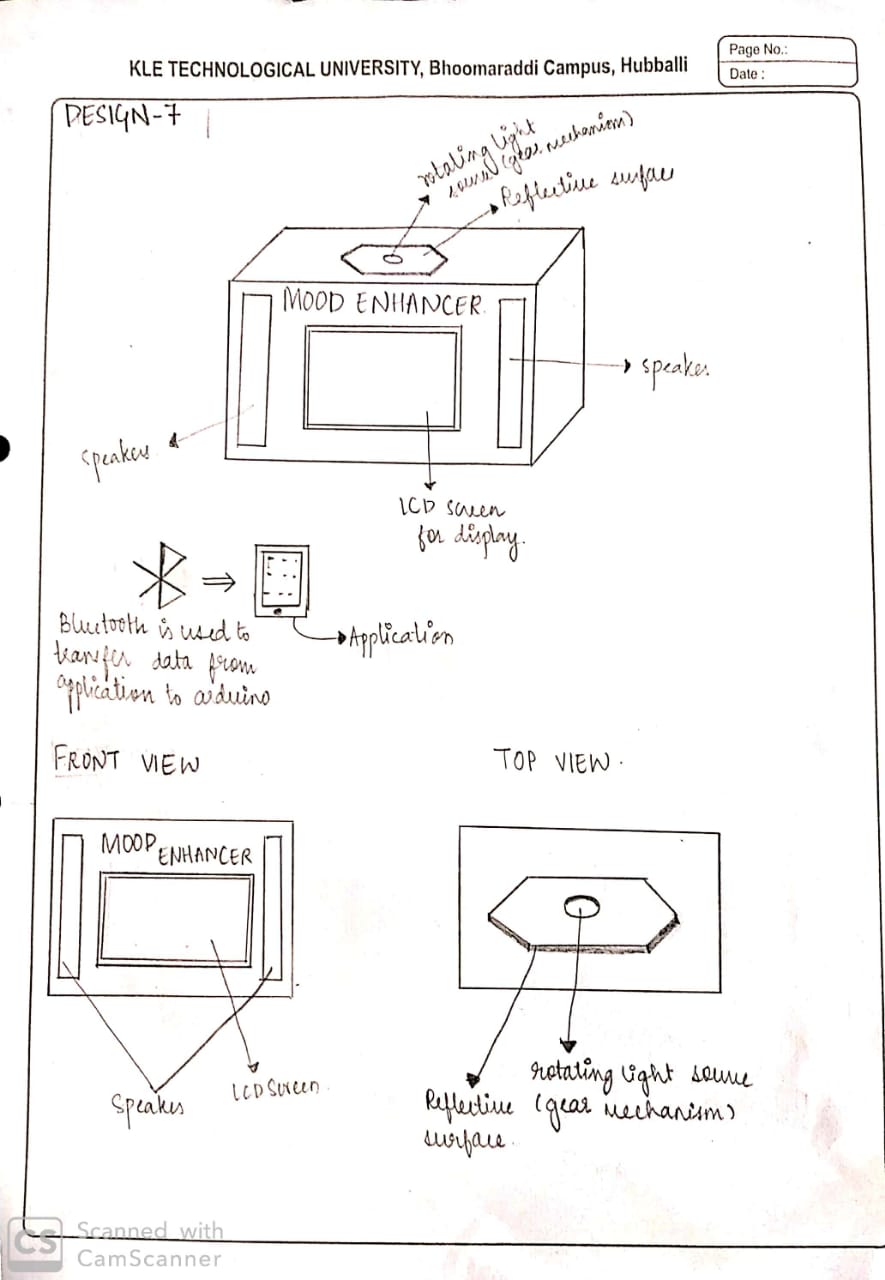 KLE TECHNOLOGICAL UNIVERSITY, Bhoomaraddi Campus, Hubballi
Page No.:
Date :
DESIGN-7
rotating light
source (gear mechanism)
Reflective surface
MOOD ENHANCER
speaker
speakers
LCD screen
for display.
Bluetooth is used to
transfer data from
application to arduino
Application
FRONT VIEW
TOP VIEW.
MOOD
ENHANCER
Speaker
LCD Screen
rotating light source
(gear mechanism)
Reflective
surface.
CS
Scanned with
CamScanner